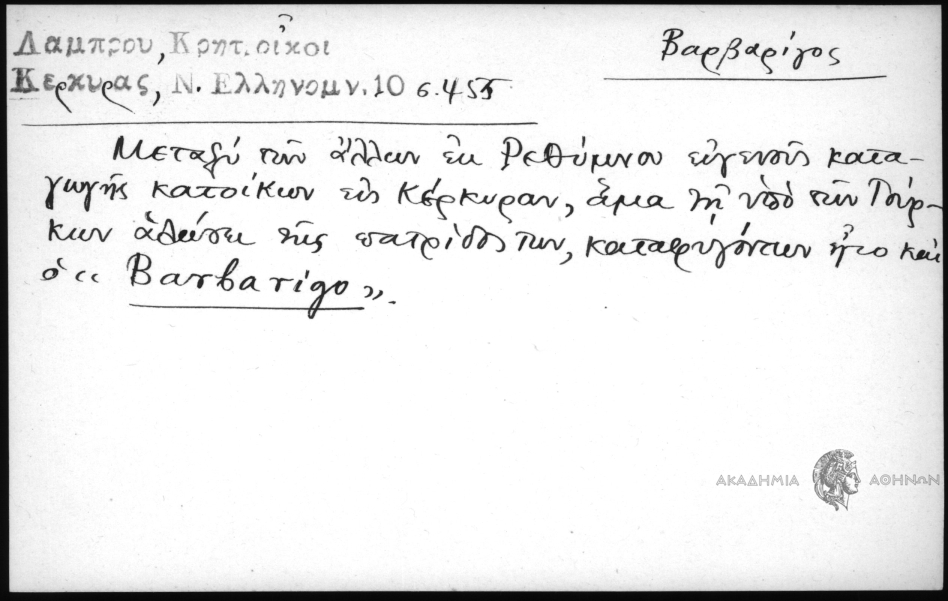 Λαμπρου, Κρητ. οἶκοι
Κερκυρας, Ν. Ελληνομν. 10 σ. 455
Βαρβαρίγος
Μεταξύ τῶν ἄλλων ἐκ Ρεθύμνου εὐγενοῦς κατα-
γωγῆς κατοίκων εἰς Κέρκυραν, ἅμα τῇ ὑπό τῶν Τούρ-
κων ἁλώσει τῆς πατρίδος των, καταφυγόντων ἦτο καί
ὁ « Barbarigo ».
ΑΚΑΔΗΜΙΑ ΑΘΗΝΩΝ